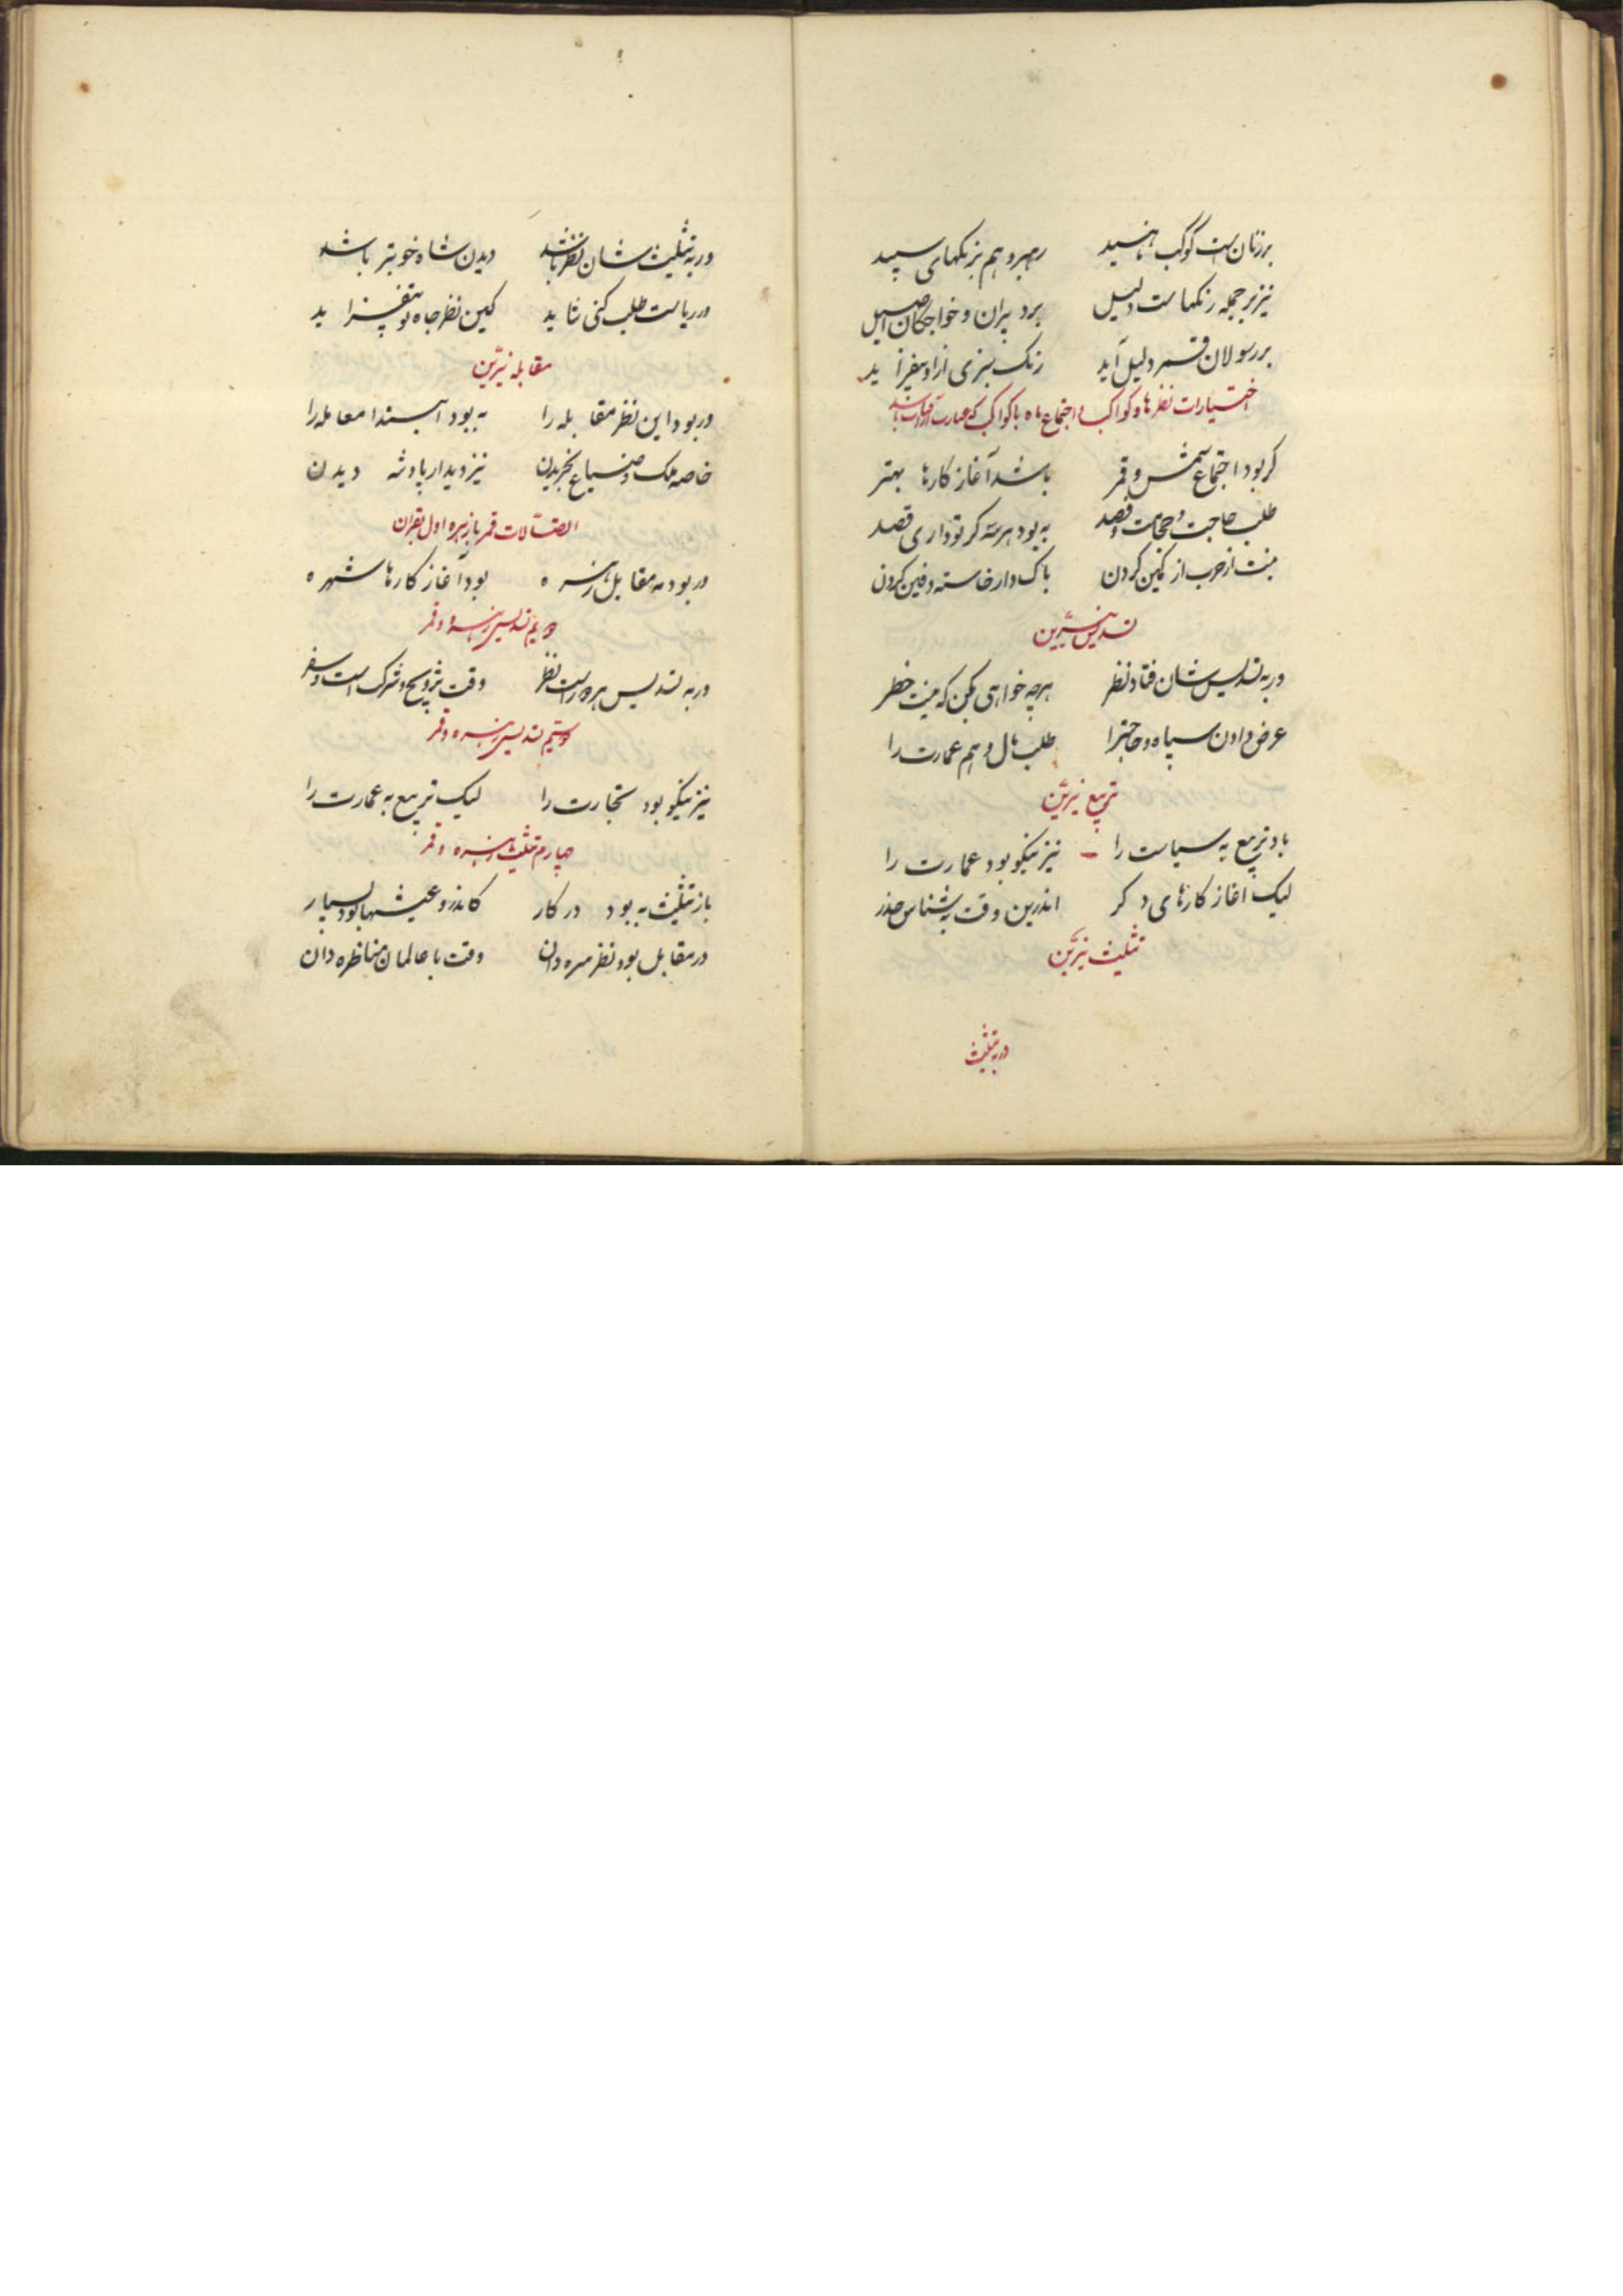 برزنان است کوکب ناهید رهبر و هم برنکهای سپید
نیز بر جمله رنکهاست دلیل بر دبیران و خواجکان اصیل
بر رسولان قمر دلیل آید رنک سبزی ازاو بیفزاید
اختیارات نظرها و کواکب و اجتماع ماه با کواکب که عبارت از قران باشد
کر بود اجتماع شمس و قمر باشد آغاز کارها بهتر
طلب حاجت و حجامت و فصد به بود هر سه کر تو داری قصد
نیست از حرب از کمین کردن باک دار خاسته دفین کردن
تسدیس نیرین
ور به تسدیس شان فتاد نظر هرچه خواهی بکن که نیست خطر
عرض دادن سپاه و حاجترا طلب مال و هم عمارت را
تربیع نیرین
باد تربیع به سیاست را نیز نیکو بود عمارت را
لیک اغاز کارهای دکر اندرین وقت به شناس حذر
تثلیث نیرین
ور به تثلیث
ور به تثلیث شان نظر باشد دیدن شاه خوبتر باشد
ور ریاست طلب کنی شاید کین نظر جاه تو بیفزاید
مقابله نیرین
ور بود این نظر مقابله را به بود ابتدا معامله را
خاصه ملک و ضیاع بخریدن نیز دیدار پادشه دیدن
اتصالات قمر با زهره اول بقران
ور بود مه مقابل زهره بود آغاز کارها شهره
دویم تسدیس زهره و قمر
ور به تسدیس هر دو راست نظر وقت تزویج و شرکست و سفر
سیم تسدیس زهره و قمر
نیز نیکو بود تجارت را لیک تربیع به عمارت را
چهارم تثلیث زهره و قمر
باز تثلیث به بود در کار کاندرو عیشها بود بسیار
در مقابل بود نظر سره دان وقت با عالمان مناظره دان